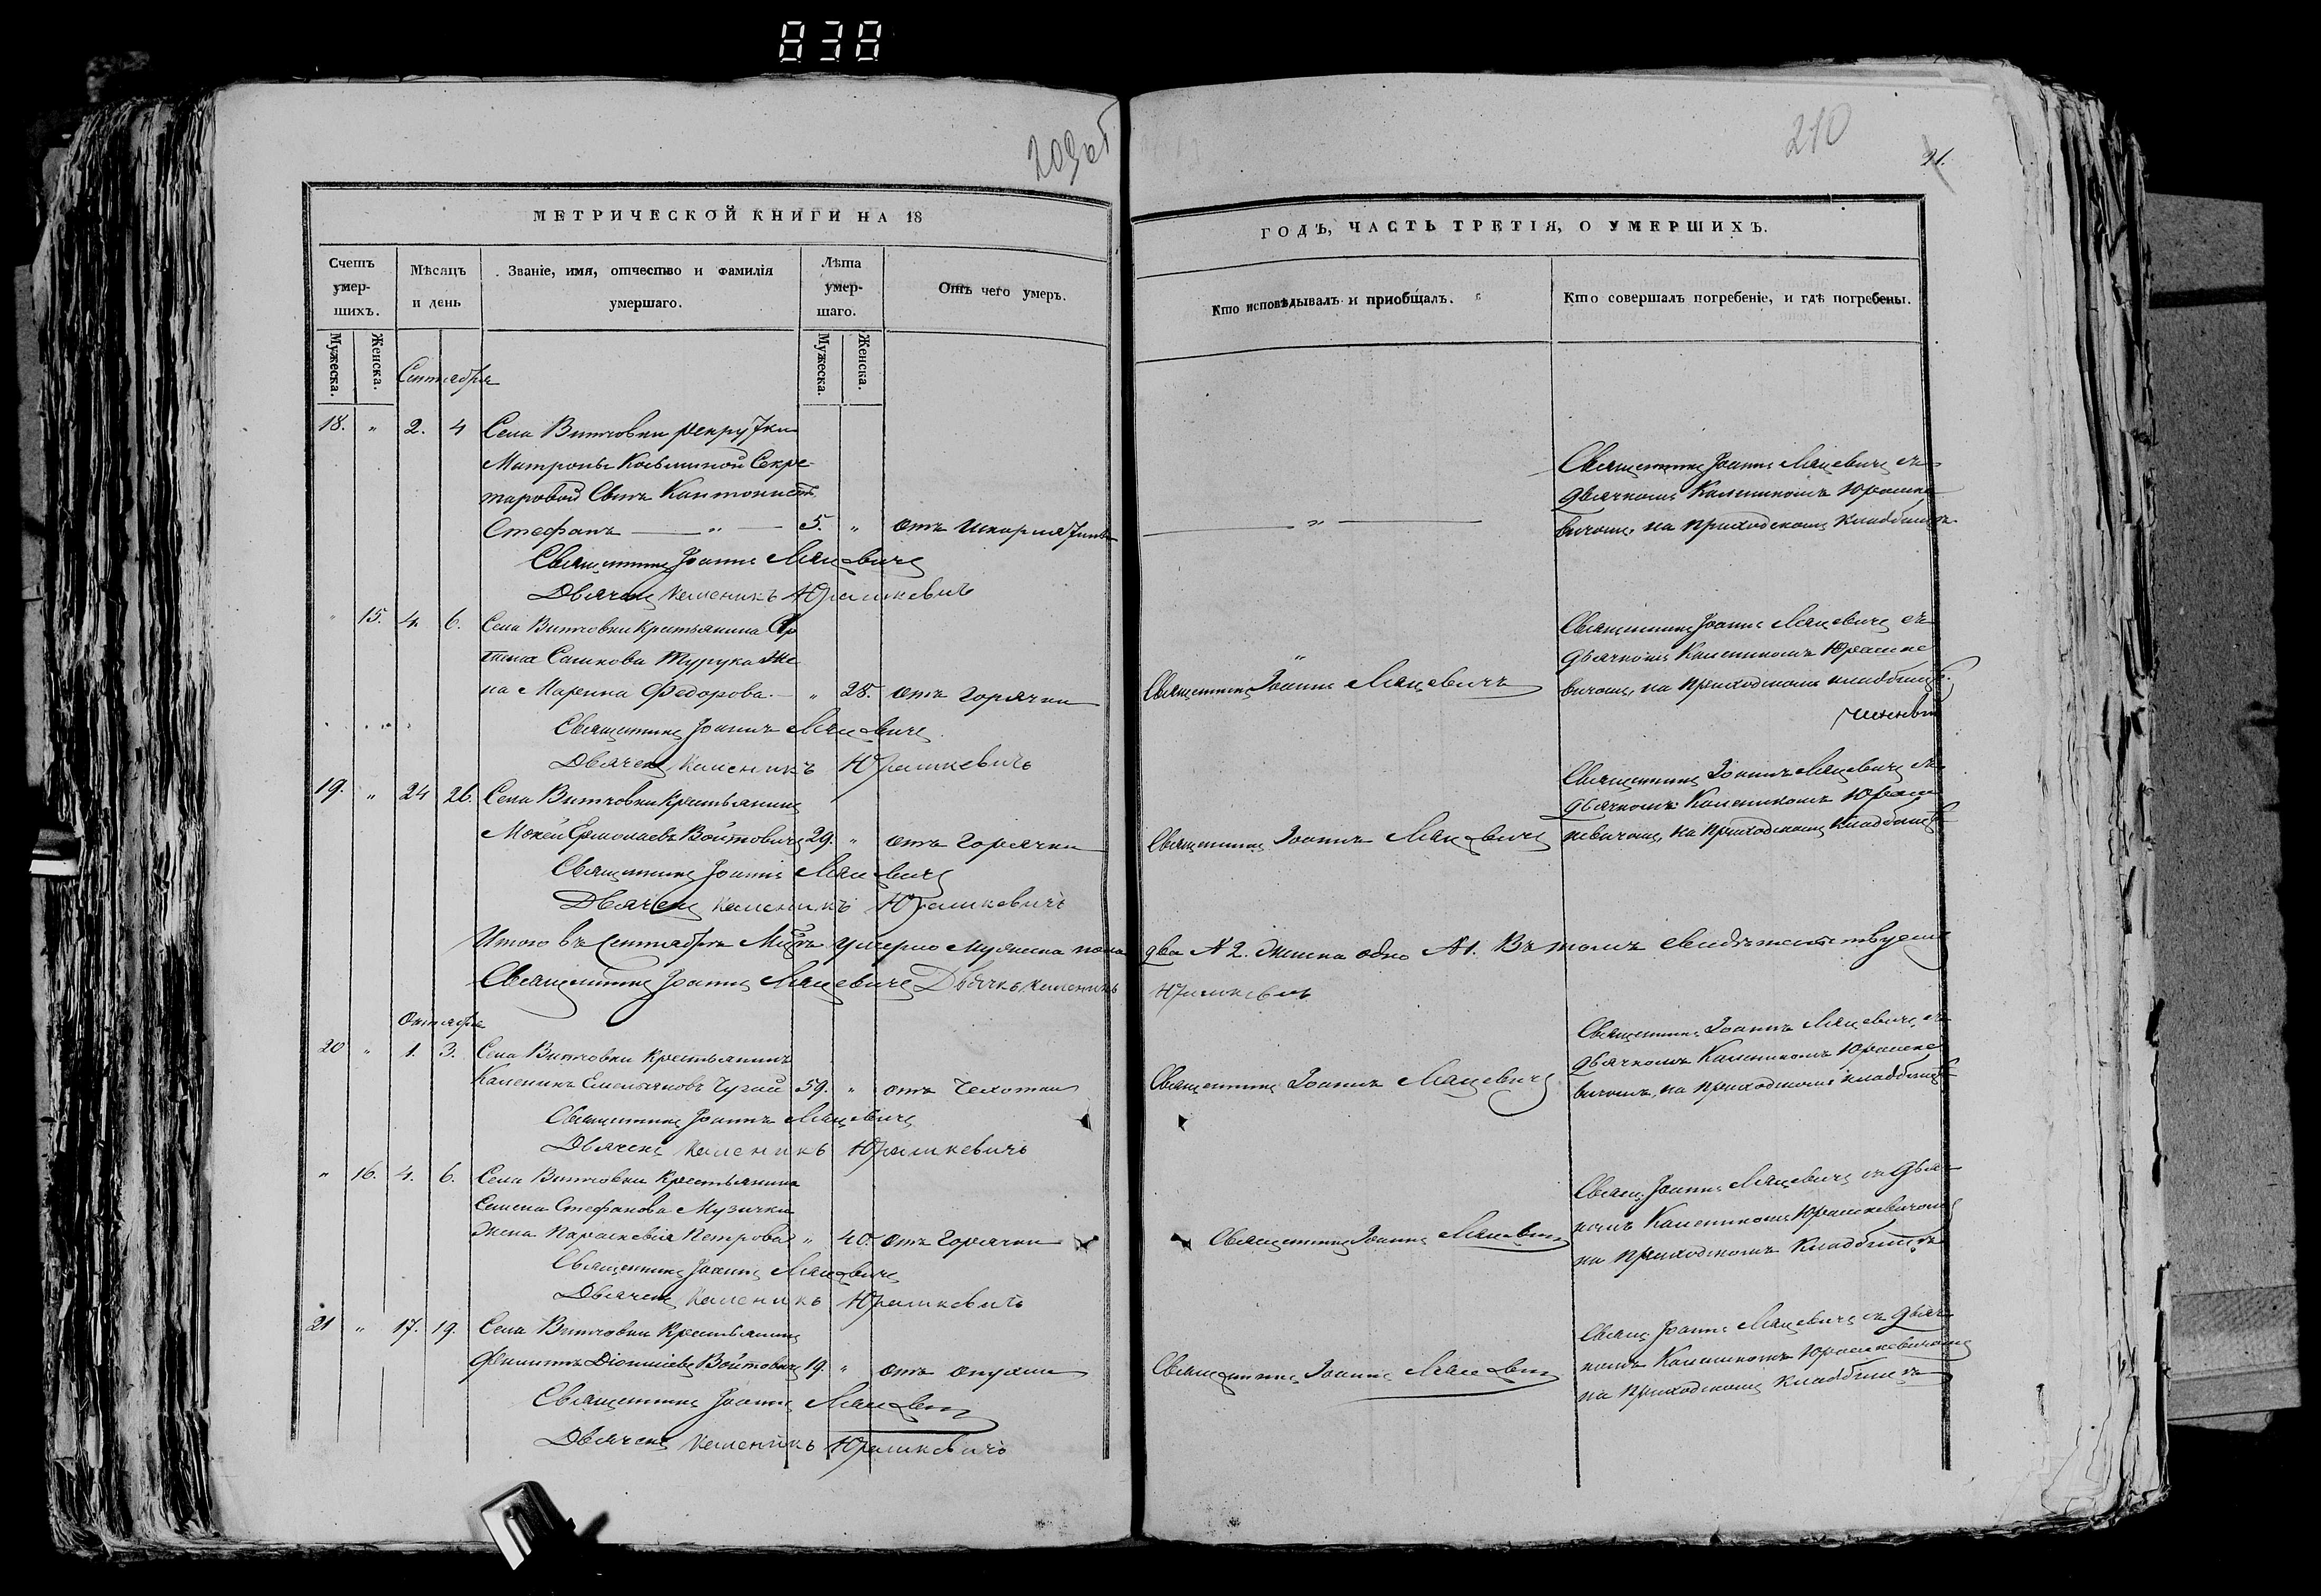 838
209об
210
21.
МЕТРИЧЕСКОЙ КНИГИ НА 18
Счетъ умер-шихъ.
Мѣсяцъ и день
Званіе, имя, отчество и фамилія умершаго.
Лѣта умер-шаго.
Отъ чего умеръ.
Мужеска.
Женска.
Мужеска.
Женска.
Сентября
18. " 2. 4 Села Витковки рекрутки
Матроны Косьминой Секре-
таровой Сынъ Кантонистъ
Стефанъ — " — 5. " отъ
Священникъ Іоаннъ Мацевичъ
Дьячекъ Каленикъ Юрашкевичъ
" 15. 4. 6. Села Витковки Крестьянина
Турука Же
на Марина Федорова. — " 28. отъ горячки
Священникъ Іоаннъ Мацевичъ
Дьячекъ Каленикъ Юрашкевичъ
19. " 24 26. Села Витковки Крестьянинъ
Мокей Ермолаевъ Войтовичъ 29. " отъ горячки
Священникъ Іоаннъ Мацевичъ
Дьячекъ Каленикъ Юрашкевичъ
Итого въ Сентябрѣ Мцѣ умерло мужеска пола
Священникъ Іоаннъ Мацевичъ Дьячкъ Каленикъ
Октября
20 " 1. 3. Села Витковки Крестьянинъ
Каленикъ Емельяновъ Чугай 59. " отъ Чехотки
Священникъ Іоаннъ Мацевичъ
Дьячекъ Каленикъ Юрашкевичъ
" 16. 4. 6. Села Витковки Крестьянина
Семена Стефанова Музычки
Жена Параскевія Петрова " 40. отъ Горячки
Священникъ Іоаннъ Мацевичъ
Дьячекъ Каленикъ Юрашкевичъ
21 " 17. 19. Села Витковки Крестьянинъ
Филиппъ Діонисіевъ Войтовичъ 19. " отъ опухли
Священникъ Іоаннъ Мацевичъ
Дьячекъ Каленикъ Юрашкевичъ
ГОДЪ, ЧАСТЬ ТРЕТІЯ, О УМЕРШИХЪ.
Кто исповѣдывалъ и приобщалъ.
Кто совершалъ погребеніе, и гдѣ погребены.
Священникъ Іоаннъ Мацевичъ съ
дьячкомъ Каленикомъ Юрашке
— " — вичомъ, на приходскомъ кладбищѣ.
Священникъ Іоаннъ Мацевичъ съ
дьячкомъ Каленикомъ Юрашке
Священникъ Іоаннъ Мацевичъ вичомъ, на приходскомъ кладбищѣ.
Священникъ Іоаннъ Мацевичъ съ
дьячкомъ Каленикомъ Юраш
Священникъ Іоаннъ Мацевичъ кевичомъ, на приходскомъ Кладбищѣ
два № 2. женска одно № 1. Въ томъ свидѣтельствуемъ
Юрашкевичъ
Священникъ Іоаннъ Мацевичъ съ
дьячкомъ Каленикомъ Юрашке
Священникъ Іоаннъ Мацевичъ вичомъ, на приходскомъ кладбищѣ
Священ. Іоаннъ Мацевичъ съ дьяч
комъ Каленикомъ Юрашкевичомъ
Священникъ Іоаннъ Мацевичъ на приходскомъ Кладбищѣ
Священ. Іоаннъ Мацевичъ съ дьяч
комъ Каленикомъ Юрашкевичомъ
Священникъ Іоаннъ Мацевичъ на приходскомъ кладбищѣ